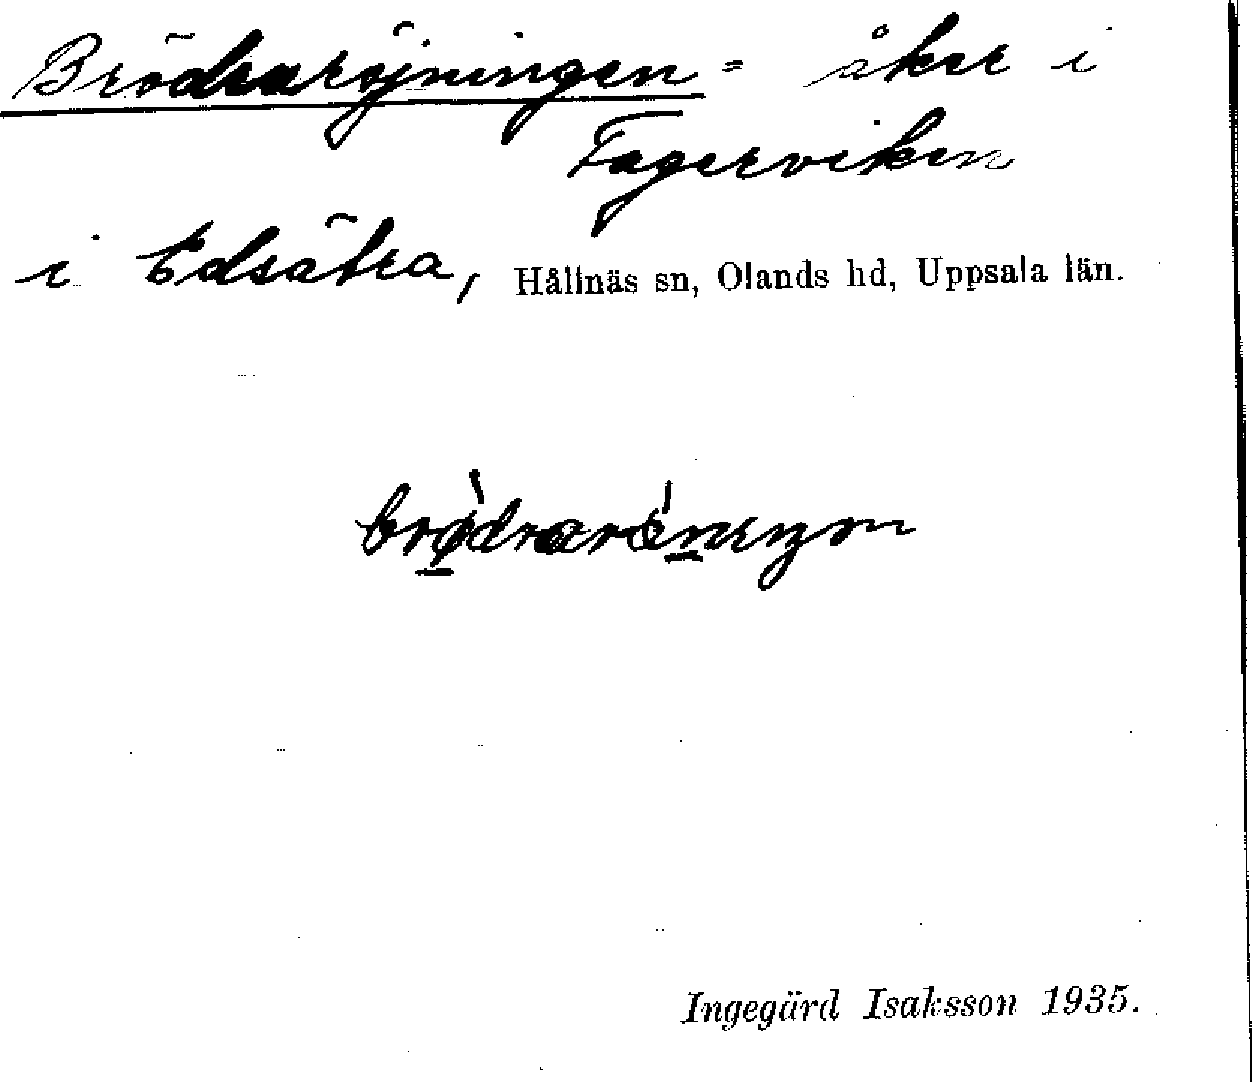 Brödraröjningen = åker i
Fagerviken
i Edsätra, Hållnäs sn, Olands hd, Uppsala län.
Ingegärd Isaksson 1935.